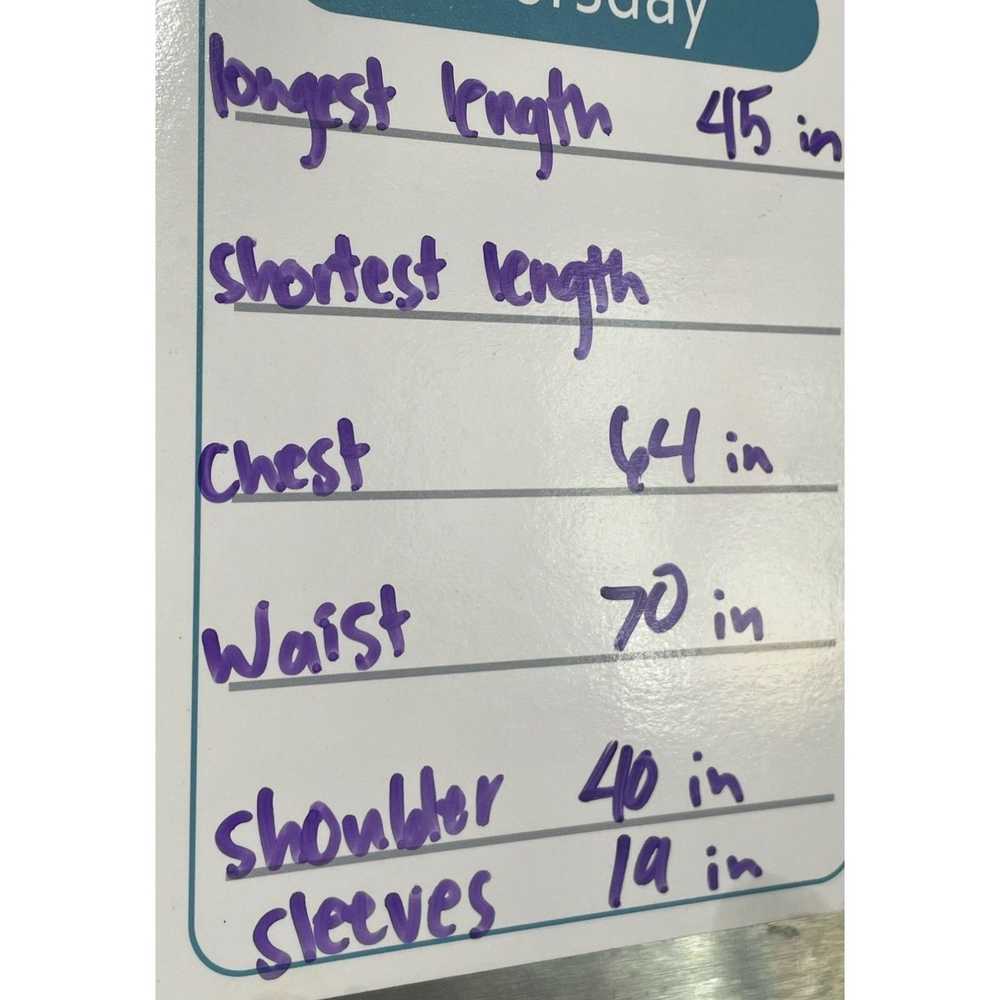 rsday
longest length 45 in
shortest length
Chest 64 in
Waist 70 in
shoulder 40 in
sleeves 19 in